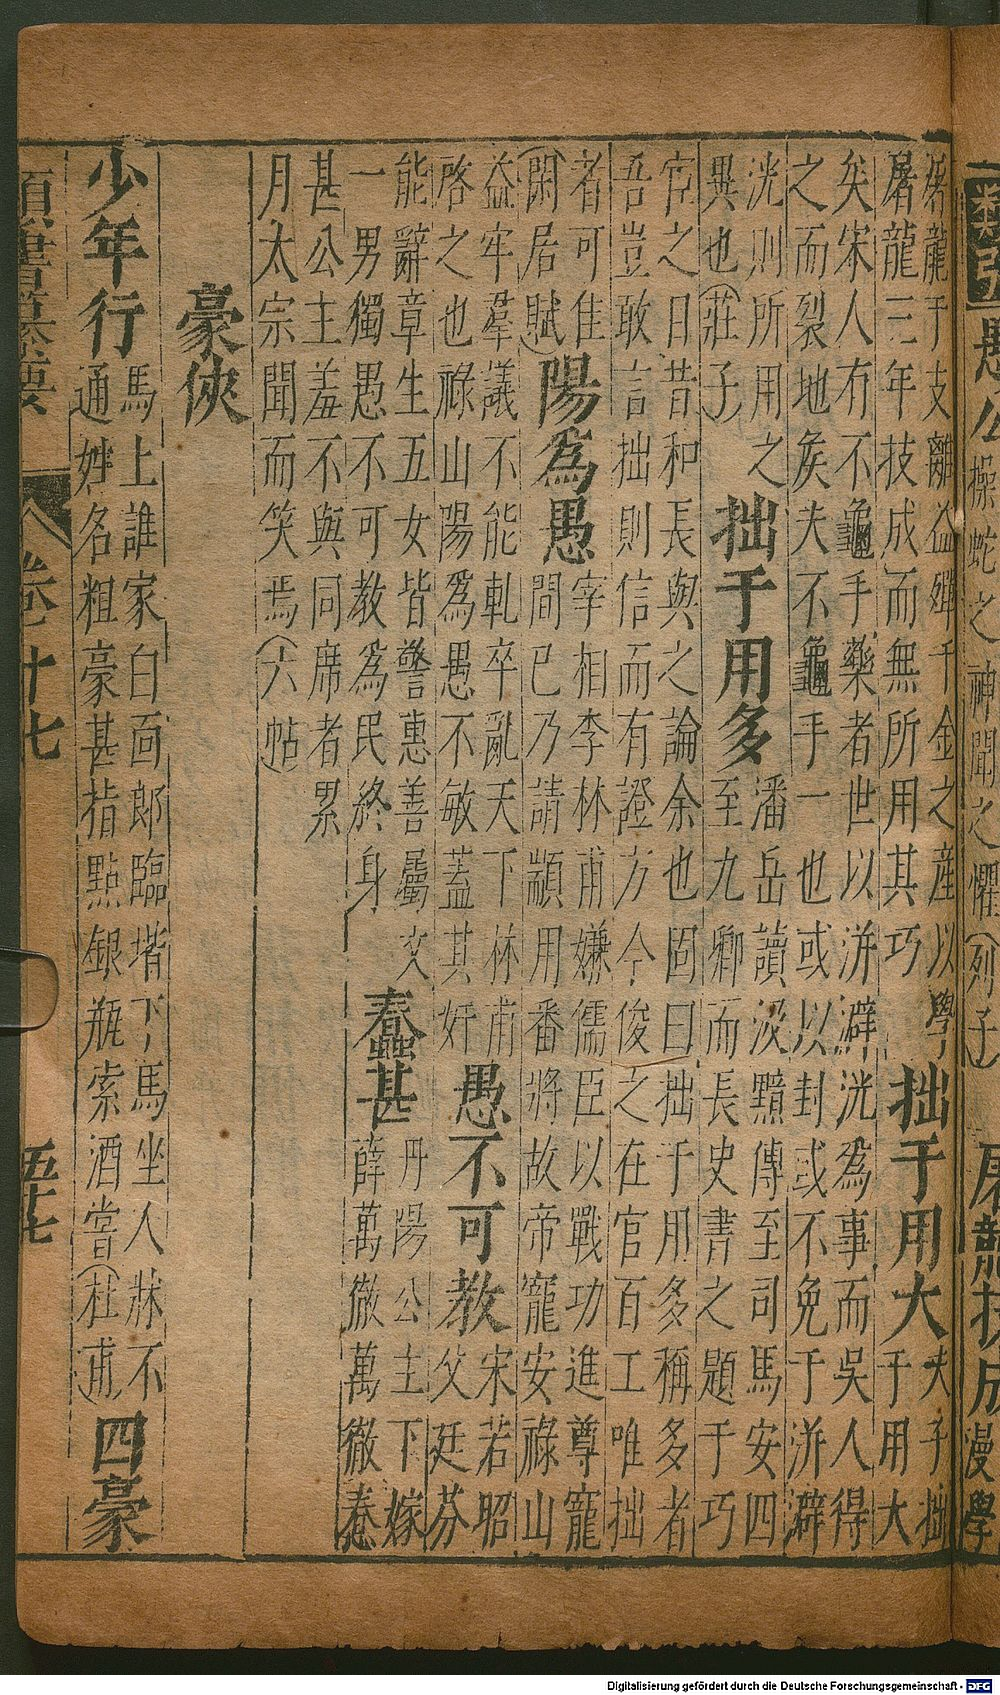 愚公 操蛇之神聞之懼(列子) 屠龍技成 漫學
屠龍于支離益殫千金之産以學
屠龍三年技成而無所用其巧
拙于用大
夫子拙
于用大
矣宋人有不龜手藥者世以洴澼洸為事而吳人得
之而裂地矦夫不龜手一也或以封或不免于洴澼
洸則所用之
異也(莊子)
拙于用多
潘岳讀汲黯傳至司馬安四
至九卿而長史書之題于巧
宦之日昔和長與之論余也固曰拙于用多稱多者
吾豈敢言拙則信而有證方今俊之在官百工唯拙
者可隹
(閑居賦)
陽為愚
宰相李林甫嫌儒臣以戰功進尊寵
間已乃請顓用番將故帝寵安祿山
益牢羣議不能軋卒亂天下林甫
啓之也祿山陽為愚不敏蓋其奸
愚不可教
宋若昭
父廷芬
能辭章生五女皆警惠善屬文
一男獨愚不可教為民終身
蠢甚
丹陽公主下嫁
薛萬徹萬徹蠢
甚公主羞不與同席者累
月太宗聞而笑焉(六帖)
豪俠
少年行
馬上誰家白面郎臨堦下馬坐人牀不
通姓名粗豪甚指點銀瓶索酒嘗(杜甫)
四豪
類書纂要 卷十七 五七
Digitalisierung gefördert durch die Deutsche Forschungsgemeinschaft - DFG